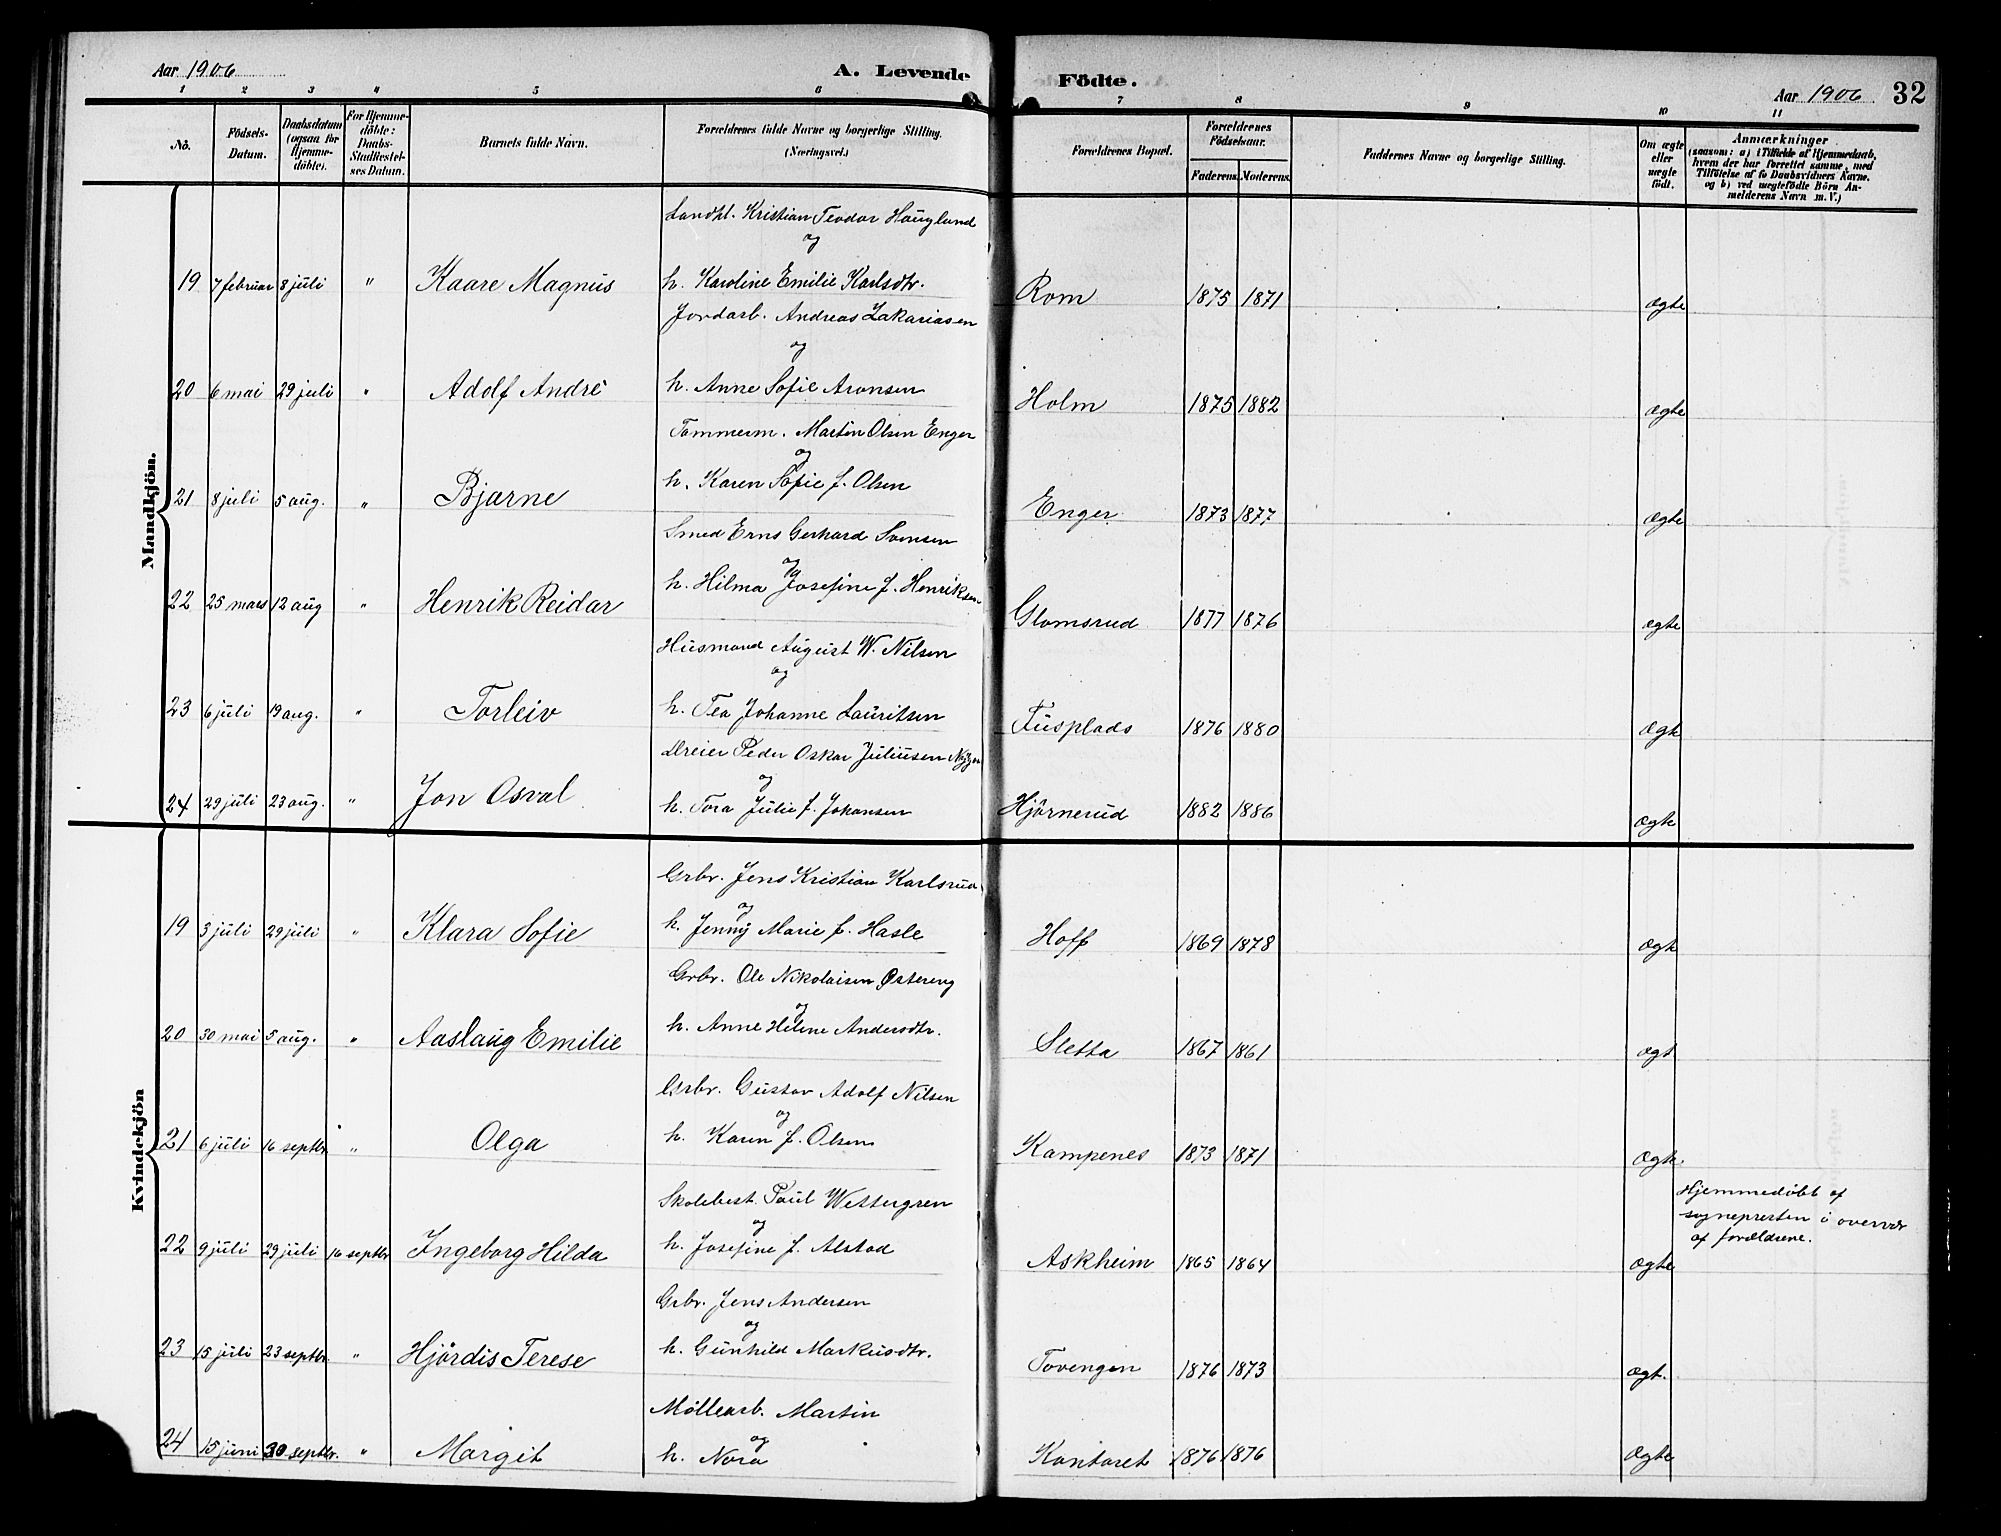 Aar 1906 A. Levende Födte. Aar 1906 32
1 2 3 4 5 6 7 8 9 10 11
No. Födsels-Datum. Daabsdatum (ogsaa for Hjemme-döbte). For Hjemme-döbte: Daabs-Stadfæstel-ses Datum. Barnets fulde Navn. Forældrenes fulde Navne og borgerlige Stilling. (Næringsvei.) Forældrenes Bopæl. Forældrenes Födselsaar. Faderens. Moderens. Faddernes Navne og borgerlige Stilling. Om ægte eller uægte födt. Anmærkninger (saasom: a) i Tilfælde af Hjemmedaab, hvem der har forrettet samme, med Tilföielse af to Daabsvidners Navne. og b) ved uægtefödte Börn An-melderens Navn m. V.)
Mandkjön.
Landh. Kristian Teodor Hauglund
og
19 7 februar 8 juli " Kaare Magnus h. Karoline Emilie Karlsdtr. Rom 1875 1871 ægte
Jordarb. Andreas Zakariasen
og
20 6 mai 29 juli " Adolf André h. Anne Sofie Aronsen Holm 1875 1882 ægte
Tømmerm. Martin Olsen Enger
og
21 8 juli 5 aug. " Bjarne h. Karen Sofie f. Olsen Enger 1873 1877 ægte
Smed Erns Gerhard Svensen
og
22 25 mars 12 aug " Henrik Reidar h. Hilma Josefine f. Henriksen Glomsrud 1877 1876 ægte
Husmand August W. Nilsen
og
23 6 juli 19 aug. " Torleiv h. Tea Johanne Lauritsen Tusplads 1876 1880 ægte
Dreier Peder Oskar Juliusen
og
24 29 juli 23 aug. " Jon Osval h. Tora Julie f. Johansen Hjörnerud 1882 1886 ægte
Kvindekjön
Grbr. Jens Kristian Karlsrud
og
19 3 juli 29 juli " Klara Sofie h. Jenny Marie f. Hasle Hoff 1869 1878 ægte
Grbr. Ole Nikolaisen Østereng
og
20 30 mai 5 aug. " Aaslaug Emilie h. Anne Helene Andersdtr. Sletta 1867 1861 ægt
Grbr. Gustav Adolf Nilsen
og
21 6 juli 16 septbr " Olga h. Karen f. Olsen Kampenes 1873 1871 ægte.
Skolebest. Paul Wettergren Hjemmedøbt af
og sognepresten i overvær
22 9 juli 29 juli 16 septbr Ingeborg Hilda h. Josefine f. Alstad Askheim 1865 1864 ægte af forældrene.
Grbr. Jens Andersen
og
23 15 juli 23 septbr. " Hjördis Terese h. Gunhild Markusdtr. Tovengen 1876 1873 ægt.
Møllearb. Martin
og
24 15 juni 30 septbr. " Margit h. Nora Kontoret 1876 1876 ægte